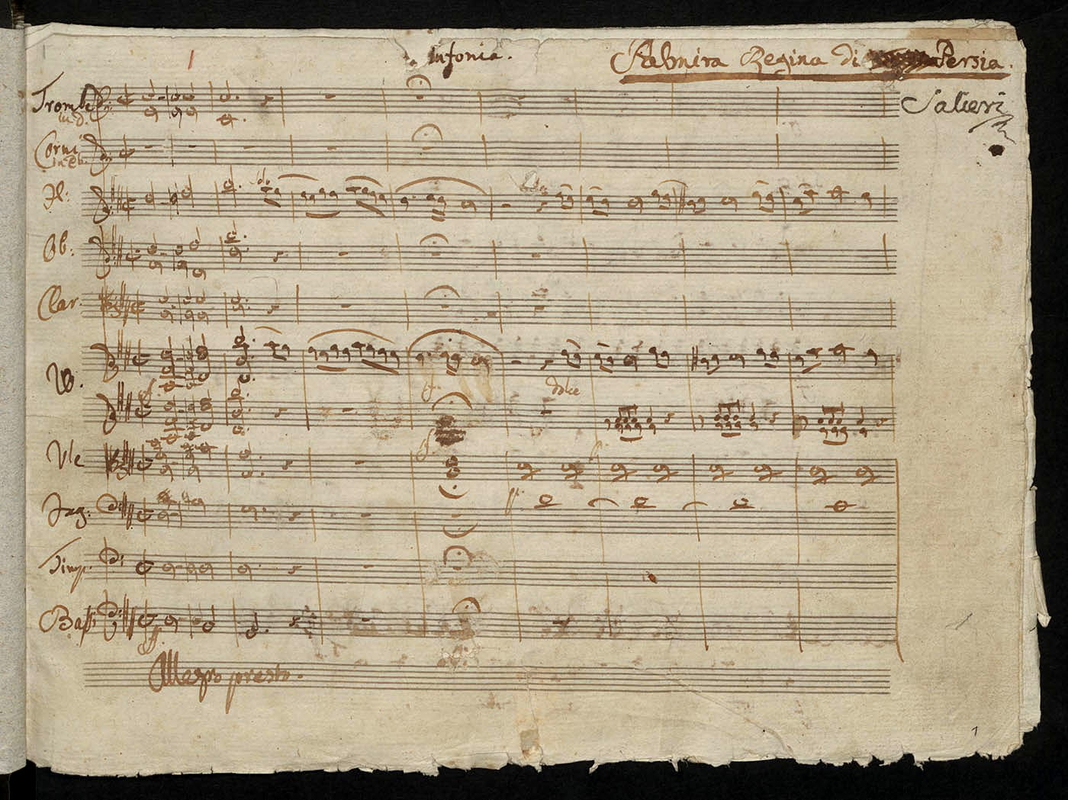 Sinfonia.
Palmira Regina di Persia.
Salieri
Trombe
in d.
Corni
Fl:
Ob:
Clar
VV.
dolce
Vle
Fag:
Timp.
Bassi
Allegro presto.
1